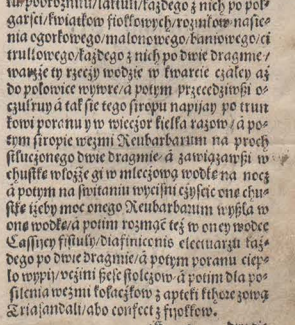 garści/kwiatkow fiołkowych/rozinkow nasie-
nia ogorkowego/malonowego/baniowego/ci
trullowego/każdego z nich po dwie dragmie/
warzże ty rzeczy wodzie w kwarcie czałey aż
do połowice wywre/a potym przecedziwßi o-
czukruy á tak sie tego siropu napijay po trun
kowi porannu y w wieczor kielka razow/á po-
tym siropie weźmi Reubarbarum na proch
stłuczonego dwie dragmie/á zawiązawßi w
chustkę włożże gi w mleczową wodkę na nocz
á potym na switaniu wyciśni czyście onę chu-
stkę iżeby moc onego Reubarbarum wyßła w
onę wodkę/á potim rozmąć też w oney wodce
Cassiiey fistuły/diafiniconis electuarzu każ-
dego po dwie dragmie/á potym poranu ciep-
ło wypij/uczini ßeść stolczow á potim dla po-
silenia weźmi kołaczkow z apteki kthore zową
Triasandali/abo confect z fijołkow.